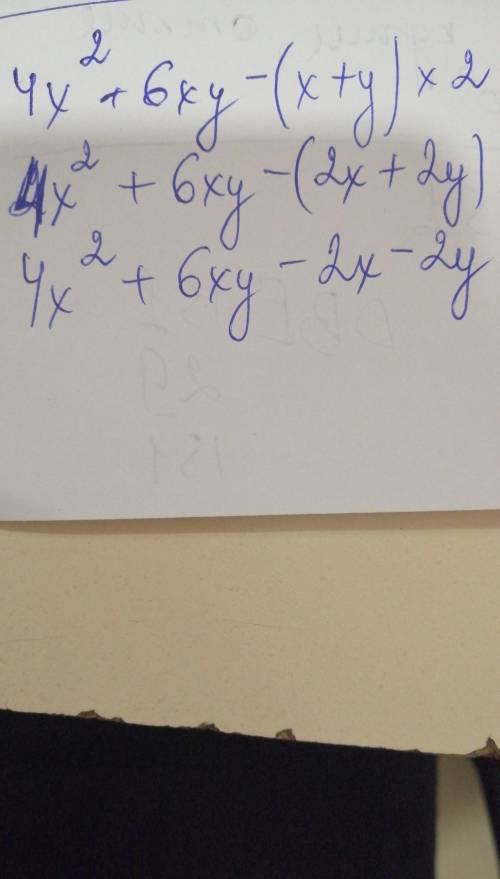 4x² + 6xy - (x+y) × 2
4x² + 6xy - (2x + 2y)
4x² + 6xy - 2x - 2y